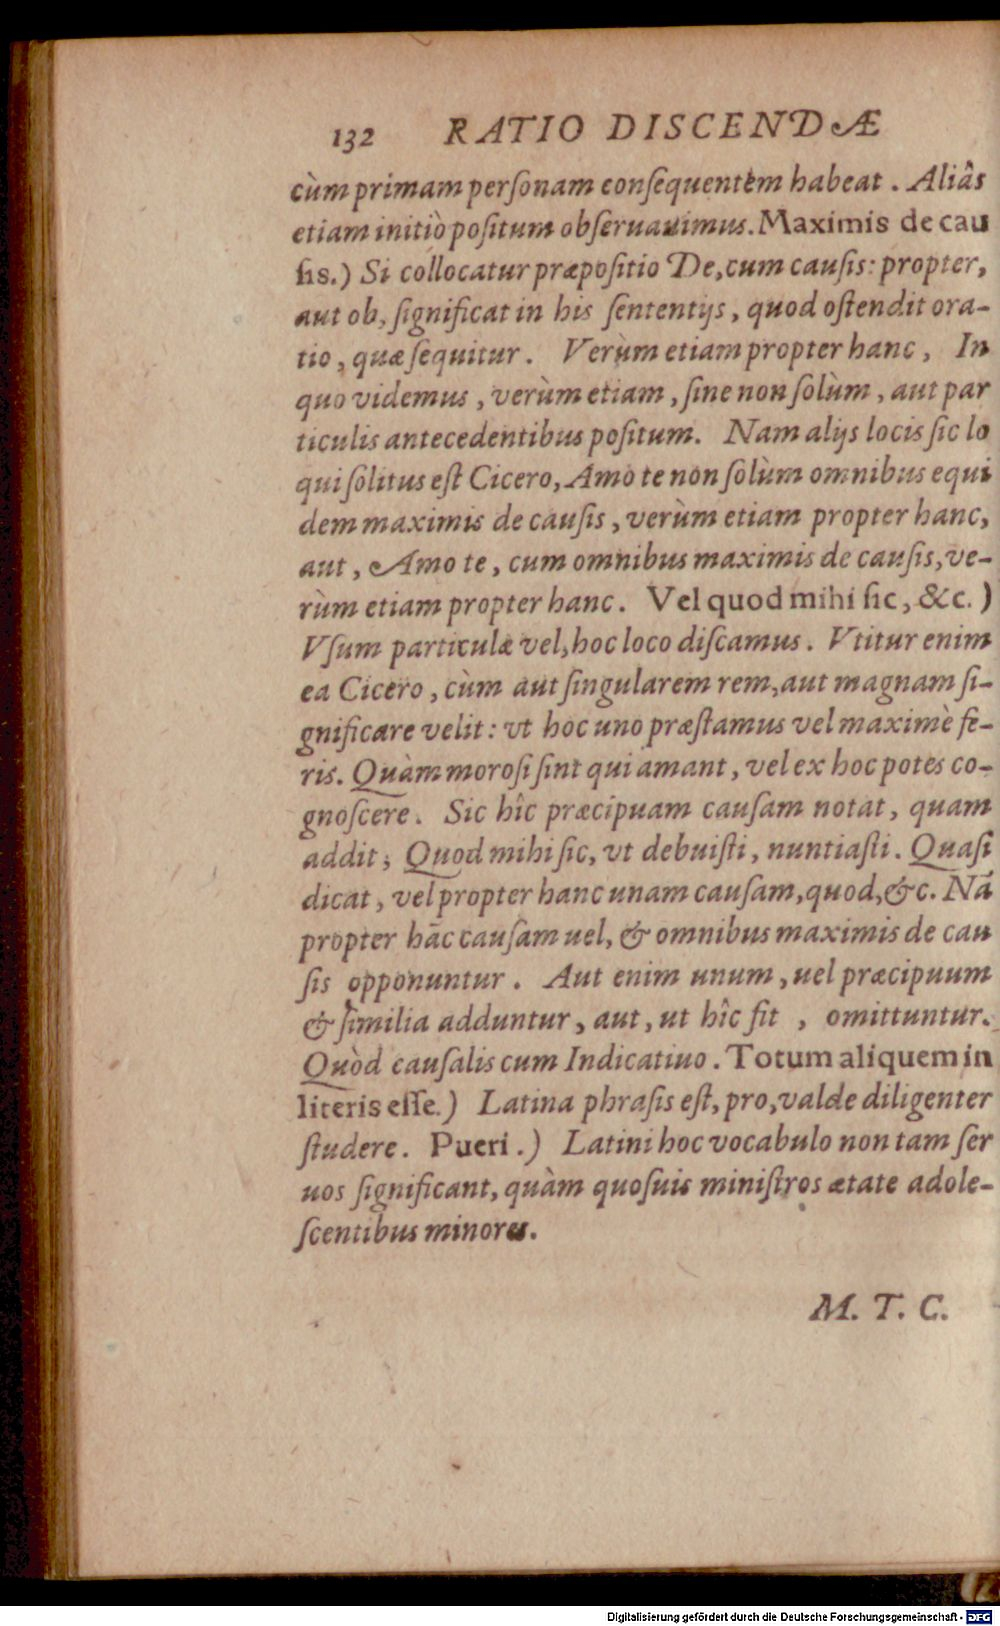 132 RATIO DISCENDÆ
cùm primam perſonam conſequentem habeat . Aliâs
etiam initiò poſitum obſeruauimus. Maximis de cau
ſis.) Si collocatur præpoſitio De, cum cauſis: propter,
aut ob, ſignificat in his ſententijs, quod oſtendit ora-
tio, quæ ſequitur. Verùm etiam propter hanc, In
quo videmus, verùm etiam, ſine non ſolùm, aut par
ticulis antecedentibus poſitum. Nam alijs locis ſic lo
qui ſolitus eſt Cicero, Amo te non ſolùm omnibus equi
dem maximis de cauſis, verùm etiam propter hanc,
aut, Amo te, cum omnibus maximis de cauſis, ve-
rùm etiam propter hanc. Vel quod mihi ſic, &c.)
Vſum particulæ vel, hoc loco diſcamus. Vtitur enim
ea Cicero, cùm aut ſingularem rem, aut magnam ſi-
gnificare velit: vt hoc uno præſtamus vel maximè fe-
ris. Quàm moroſi ſint qui amant, vel ex hoc potes co-
gnoſcere. Sic hîc præcipuam cauſam notat, quam
addit; Quod mihi ſic, vt debuiſti, nuntiaſti. Quaſi
dicat, vel propter hanc unam cauſam, quod, &c. Nã
propter hãc cauſam uel, & omnibus maximis de cau
ſis opponuntur. Aut enim unum, uel præcipuum
& ſimilia adduntur, aut, ut hîc fit , omittuntur.
Quòd cauſalis cum Indicatiuo. Totum aliquem in
literis eſſe.) Latina phraſis eſt, pro, valde diligenter
ſtudere. Pueri.) Latini hoc vocabulo non tam ſer
uos ſignificant, quàm quoſuis miniſtros ætate adole-
ſcentibus minores.
M. T. C.
Digitalisierung gefördert durch die Deutsche Forschungsgemeinschaft - DFG